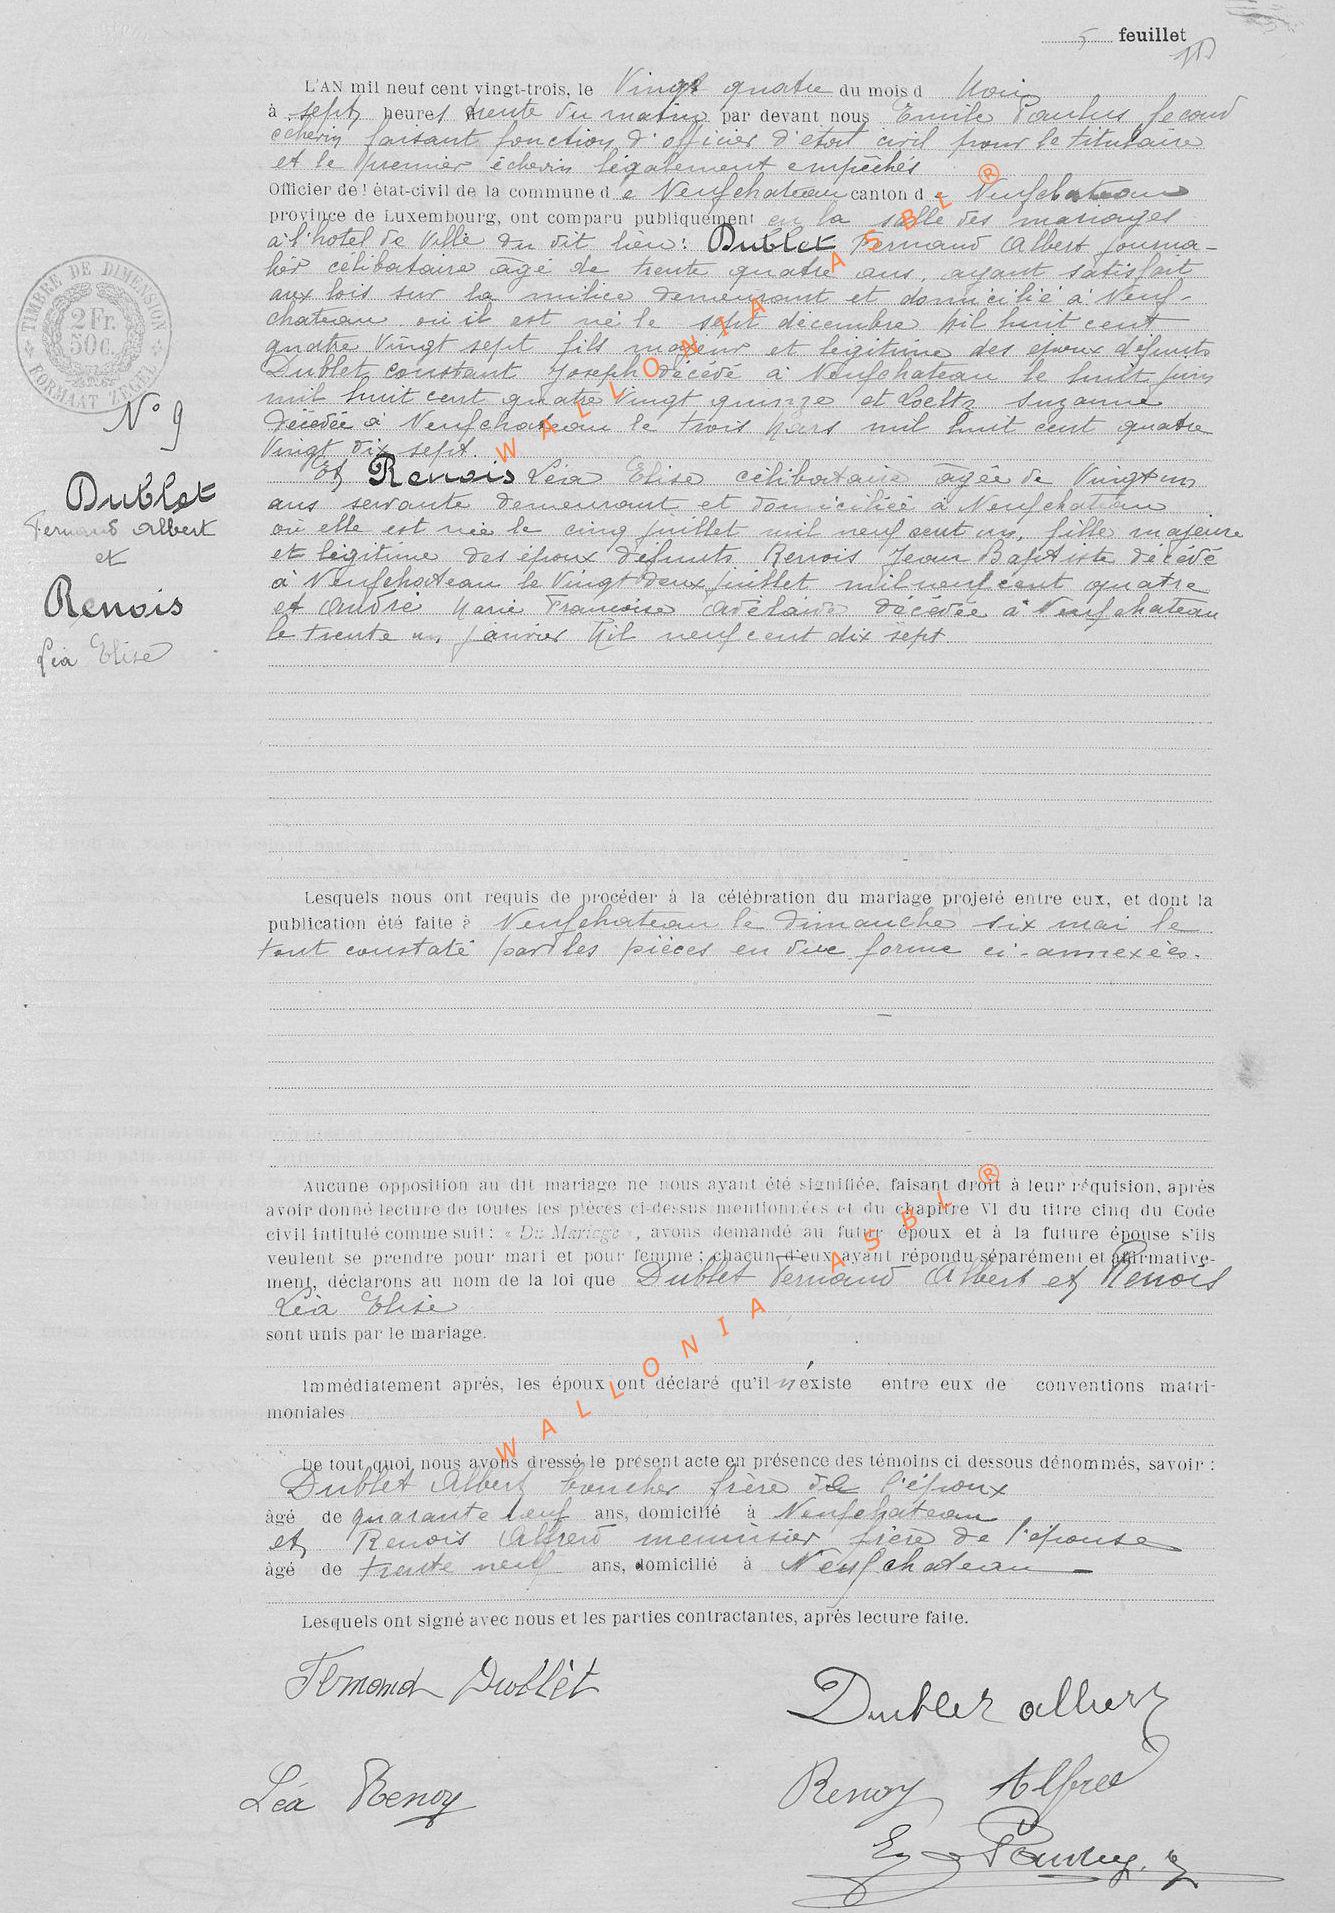 5 feuillet
L'AN mil neuf cent vingt-trois, le Vingt quatre du mois d Mai
à sept heures trente du matin par devant nous Emile Paulus second
échevin faisant fonction d'officier d'état civil pour le titulaire
et le premier échevin légalement empêchés
Officier de l'état-civil de la commune de Neufchateau canton de Neufchateau
province de Luxembourg, ont comparu publiquement en la salle des mariages
à l'hotel de Ville du dit lieu : Dublet Fernand Albert journa-
lier célibataire âgé de trente quatre ans, ayant satisfait
aux lois sur la milice demeurant et domicilié à Neuf-
chateau où il est né le sept décembre Mil huit cent
quatre Vingt sept fils majeur et légitime des époux défunts
Dublet Constant Joseph décédé à Neufchateau le huit juin
mil huit cent quatre Vingt quinze et Loeltz Suzanne
décédée à Neufchateau le trois Mars mil huit cent quatre
Vingt dix sept.
Et Renois Léa Elise célibataire âgée de Vingt un
ans servante demeurant et domiciliée à Neufchateau
où elle est née le cinq juillet mil neuf cent un, fille majeure
et légitime des époux défunts Renois Jean Baptiste décédé
à Neufchateau le Vingt deux juillet mil neuf cent quatre
et André Marie Francoise Adélaïde décédée à Neufchateau
le trente un janvier Mil neuf cent dix sept.
TIMBRE DE DIMENSION
2 Fr.
50 c.
FORMAAT ZEGEL
N° 9
Dublet
Fernand Albert
et
Renois
Léa Elise
Lesquels nous ont requis de procéder à la célébration du mariage projeté entre eux, et dont la
publication été faite à Neufchateau le dimanche six mai le
tout constaté par les pièces en due forme ci-annexées.
Aucune opposition au dit mariage ne nous ayant été signifiée, faisant droit à leur réquision, après
avoir donné lecture de toutes les pièces ci-dessus mentionnées et du chapitre VI du titre cinq du Code
civil intitulé comme suit : « Du Mariage », avons demandé au futur époux et à la future épouse s'ils
veulent se prendre pour mari et pour femme ; chacun d'eux ayant répondu séparément et affirmative-
ment, déclarons au nom de la loi que Dublet Fernand Albert et Renois
Léa Elise
sont unis par le mariage.
Immédiatement après, les époux ont déclaré qu'il n'existe entre eux de conventions matri-
moniales
De tout quoi nous avons dressé le présent acte en présence des témoins ci dessous dénommés, savoir :
Dublet Albert boucher frère de l'époux
âgé de quarante neuf ans, domicilié à Neufchateau
et Renois Alfred menuisier frère de l'épouse
âgé de trente neuf ans, domicilié à Neufchateau
Lesquels ont signé avec nous et les parties contractantes, après lecture faite.
Fernand Dublèt
Dublet albert
Léa Renoy
Renoy Alfred
WALLONIA ASBL ®
WALLONIA ASBL ®